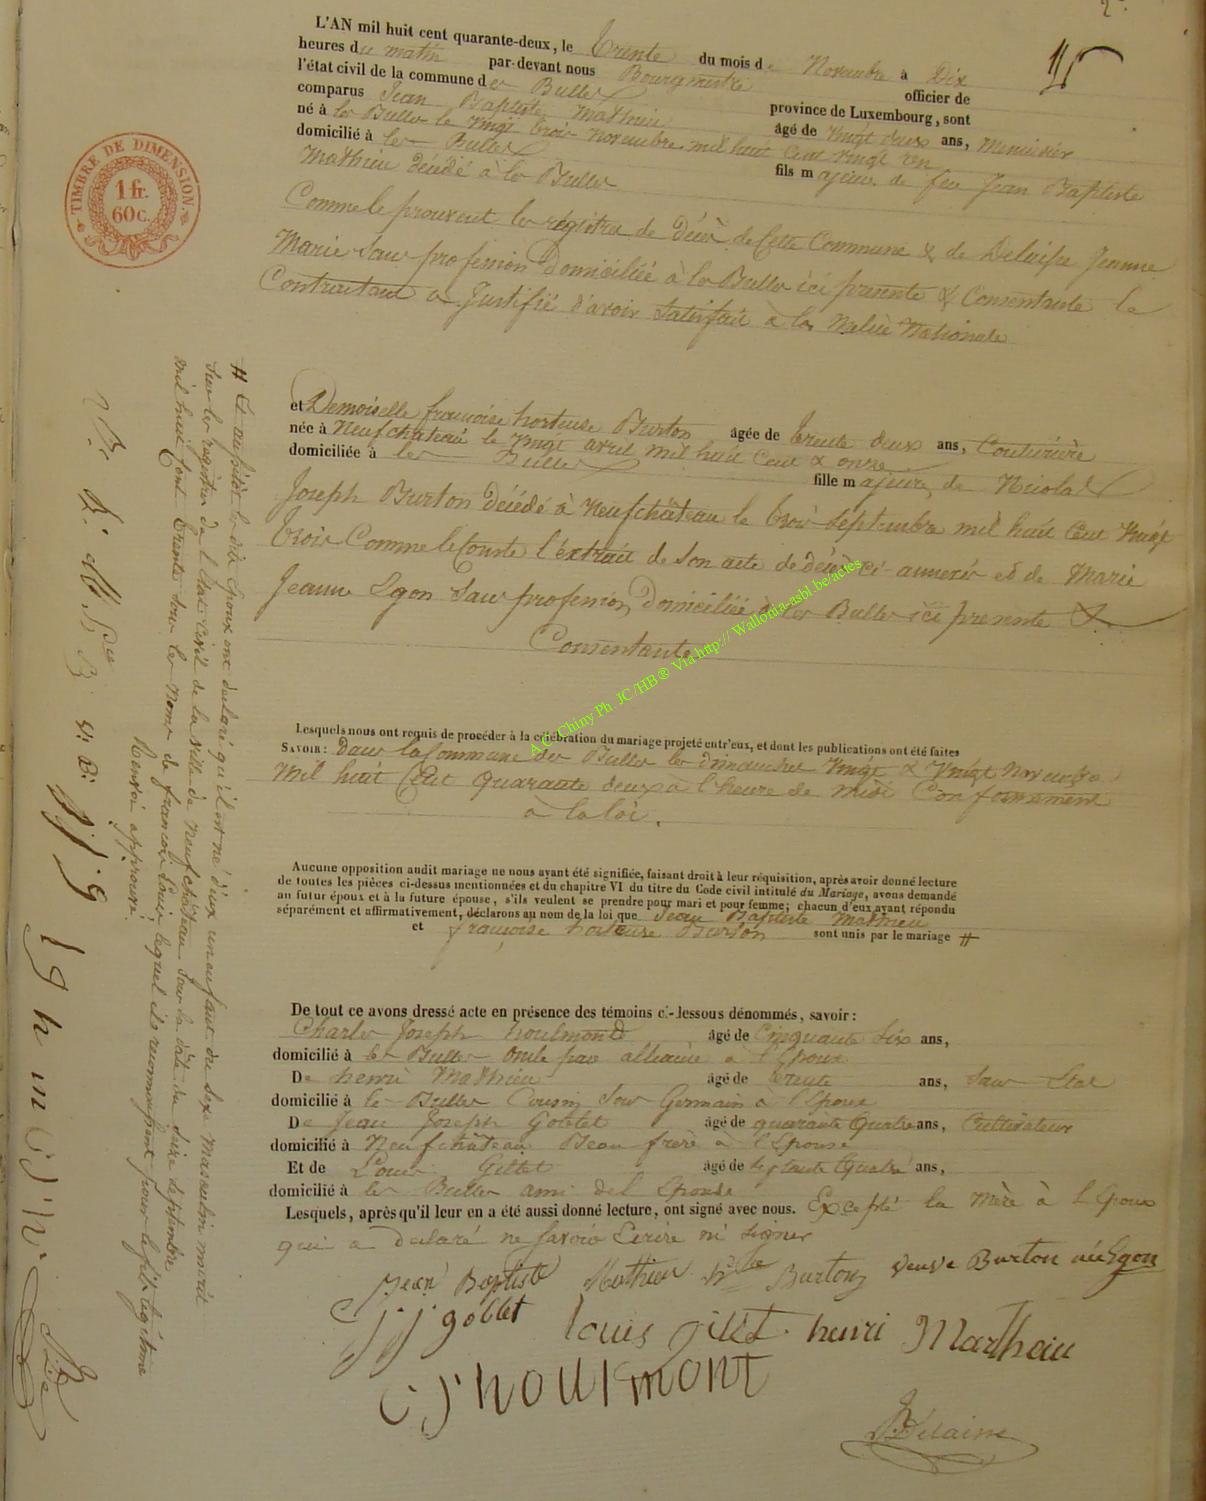 2.
15
L'AN mil huit cent quarante-deux, le trente du mois de Novembre à Dix
heures du matin par-devant nous Bourgmestre officier de
l'état civil de la commune des Bulles province de Luxembourg, sont
comparus Jean Baptiste Mathieu âgé de vingt deux ans, Menuisier
né à les Bulles le vingt trois Novembre mil huit cent vingt un
domicilié à les Bulles fils majeur de feu Jean Baptiste
Mathieu décédé à les Bulles
Comme le prouvent les régistres de décès de Cette Commune & de Jeanne
Marie Sans profession Domiciliée à les Bulles ici présente & Consentante le
Contractant a Justifié d'avoir Satisfait à la Nationale
et Demoiselle françoise hortense Burton âgée de trente deux ans, Couturière
née à Neufchateau le vingt avril mil huit Cent & onze
domiciliée à les Bulles fille majeure, de Nicolas
Joseph Burton décédé à Neufchâteau le trois Septembre mil huit Cent vingt
trois Comme le Conste l'extrait de Son acte de décès ci-annexés et de Marie
Jeanne Lgon Sans profession, domiciliée à les Bulles ici présente &
Consentante
Lesquels nous ont requis de procéder à la célébration du mariage projeté entr'eux, et dont les publications ont été faites
SAVOIR: Dans la Commune des Bulles les dimanches vingt & vingt Novembre
Mil huit Cent quarante deux à l'heure de Midi Conformement
à la loi.
Aucune opposition audit mariage ne nous ayant été signifiée, faisant droit à leur réquisition, après avoir donné lecture
de toutes les pièces ci-dessus mentionnées et du chapitre VI du titre du Code civil intitulé du Mariage, avons demandé
au futur époux et à la future épouse, s'ils veulent se prendre pour mari et pour femme; chacun d'eux ayant répondu
séparément et affirmativement, déclarons au nom de la loi que Jean Baptiste Mathieu
et françoise hortense Burton sont unis par le mariage #
De tout ce avons dressé acte en présence des témoins ci-dessous dénommés, savoir:
Charles Joseph houlmond âgé de Cinquante Six ans,
domicilié à les Bulles Oncle par alliance à l'Epoux
De henri Mathieu âgé de trente ans, Sans Etat
domicilié à les Bulles Cousin Sous Germain à l'Epoux
De Jean Joseph Goblet âgé de quarante Quatre ans, Cultivateur
domicilié à Neufchâteau Beau frère à l'Epouse
Et de Louis Gillet âgé de septante Quatre ans,
domicilié à les Bulles ami de l'Epouse
Lesquels, après qu'il leur en a été aussi donné lecture, ont signé avec nous. Excepté la Mère à l'Epoux
qui a déclaré ne Savoir Ecrire ni Signer
Jean Baptiste Mathieu Burton veuve Burton née Lgon
j j goblet louis gillet henri Mathieu
C J houlmont
TIMBRE DE DIMENSION.
1 fr.
60c.
# Et aussitôt les dits Epoux ont déclaré qu'il est né d'eux un enfant du Sexe Masculin inscrit
Sur les registres de l'Etat-Civil de la ville de Neufchâteau Sous la date du Seize Septembre
mil huit Cent trente Sous les Noms de françois Louis lequel ils reconnaissent pour le fils légitime
Renvoi approuvé.
A C Chiny Ph. JC /HB® Via http:// Wallonia-asbl.be/actes